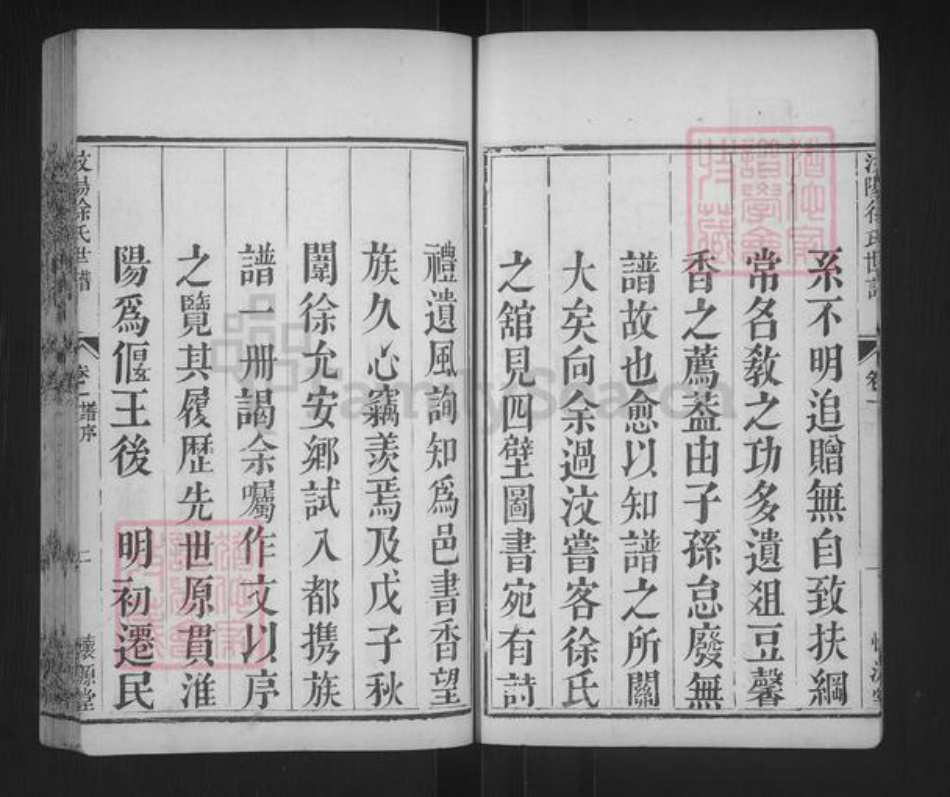 系不明追贈無自致扶綱
常名教之功多遺俎豆馨
香之薦蓋由子孫怠廢無
譜故也愈以知譜之所關
大矣向余過汶嘗客徐氏
之舘見四壁圖書宛有詩
禮遺風詢知爲邑書香望
族久心竊羨焉及戊子秋
闈徐允安鄉試入都携族
譜一册謁余囑作文以序
之覽其履歷先世原貫淮
陽爲偃王後 明初遷民
汶陽徐氏世譜 卷一譜序 二 懷源堂
FamilySearch